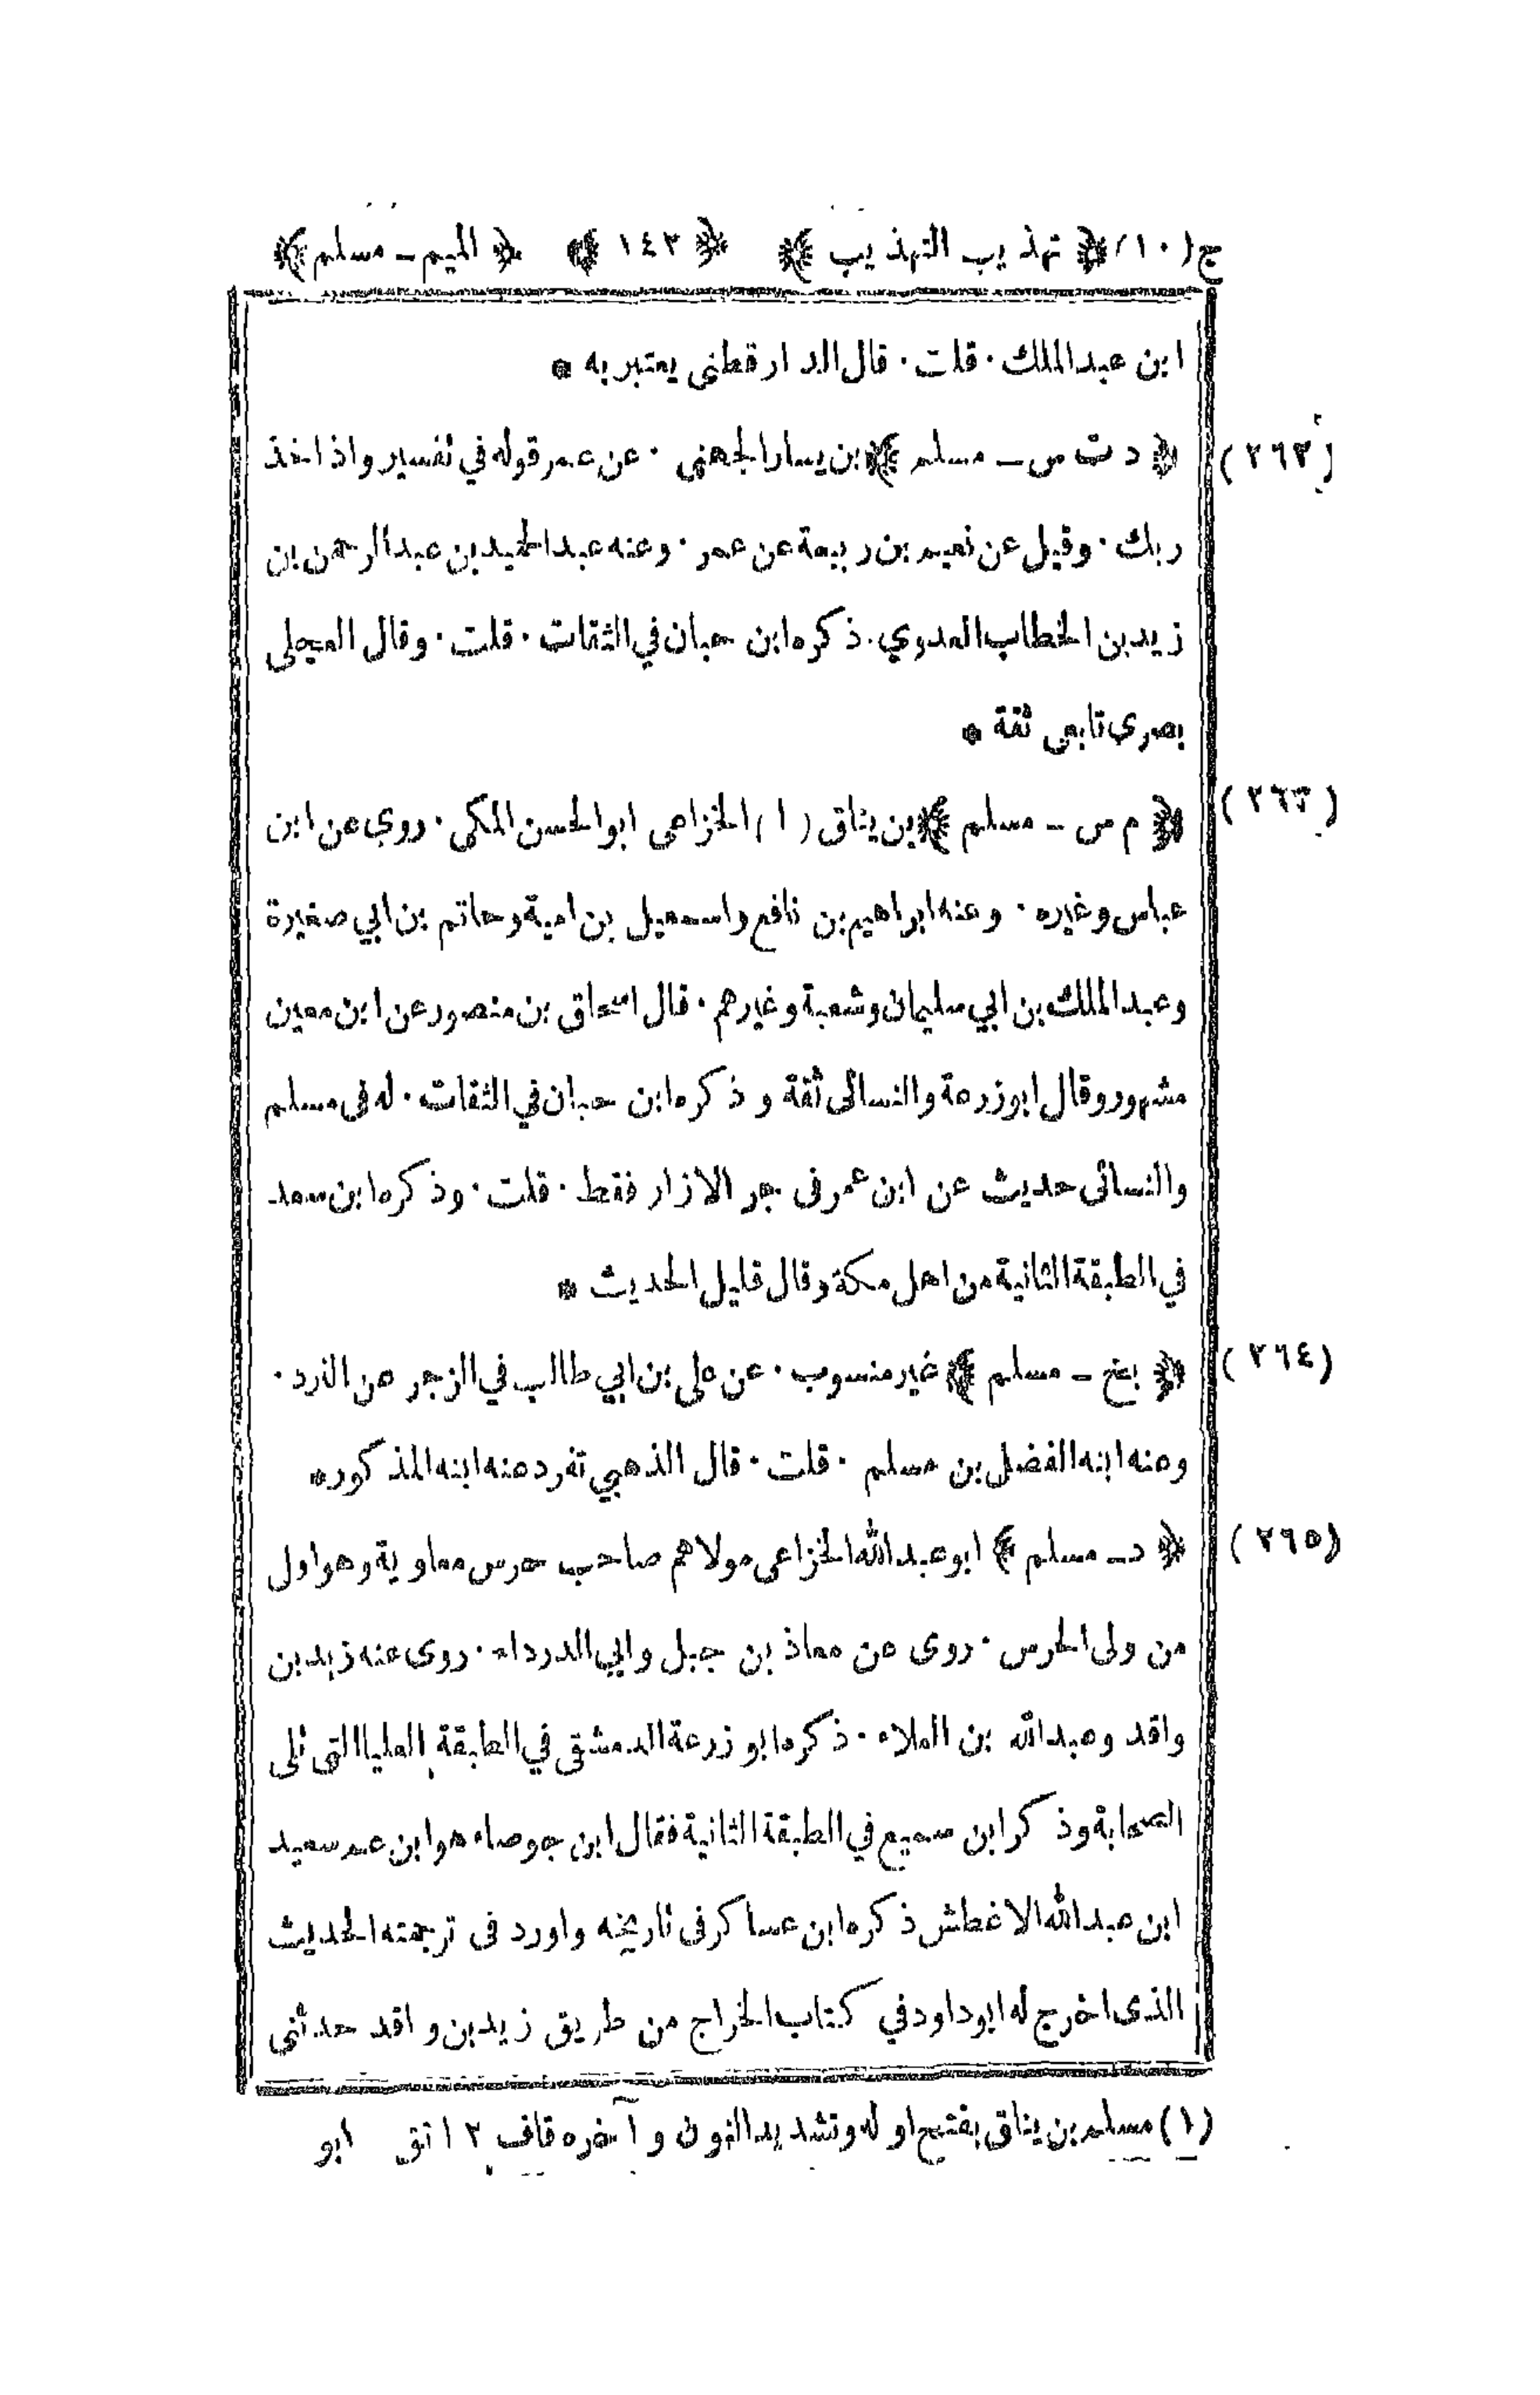 ج(١٠) ﴿ تهذيب التهذيب ﴾ ﴿ ١٤٣ ﴾ ﴿ الميم ـ مسلم ﴾
ابن عبد الملك · قلت · قال الدارقطنى يعتبر به *
(٢٦٢) ﴿ د ت س ـ مسلم ﴾ بن يسار الجهنى · عن عمر قوله في تفسير واذ اخذ
ربك · وقيل عن نعيم بن ربيعة عن عمر · وعنه عبد الحميد بن عبد الرحمن بن
زيد بن الخطاب العدوي · ذكره ابن حبان في الثقات · قلت · وقال العجلى
بصرى تابعى ثقة *
(٢٦٣) ﴿ م س ـ مسلم ﴾ بن يناق (١) الخزاعى ابو الحسن المكى · روى عن ابن
عباس وغيره · وعنه ابراهيم بن نافع واسمعيل بن امية وحاتم بن ابي صغيرة
وعبد الملك بن ابي سليمان وشعبة وغيرهم · قال اسحاق بن منصور عن ابن معين
مشهور وقال ابو زرعة والنسائى ثقة وذكره ابن حبان في الثقات · له فى مسلم
والنسائى حديث عن ابن عمر فى جر الازار فقط · قلت · وذكره ابن سعد
في الطبقة الثانية من اهل مكة وقال قليل الحديث *
(٢٦٤) ﴿ بخ ـ مسلم ﴾ غير منسوب · عن على بن ابي طالب في الزجر عن النرد ·
وعنه ابنه الفضل بن مسلم · قلت · قال الذهبي تفرد عنه ابنه المذكور *
(٢٦٥) ﴿ د ـ مسلم ﴾ ابو عبد الله الخزاعى مولاهم صاحب حرس معاوية وهو اول
من ولى الحرس · روى عن معاذ بن جبل وابي الدرداء · روى عنه زيد بن
واقد وعبد الله بن العلاء · ذكره ابو زرعة الدمشقى في الطبقة العليا التى تلى
الصحابة وذكر ابن سميع في الطبقة الثانية فقال ابن جوصاء هو ابن عم سعيد
ابن عبد الله الاغطش ذكره ابن عساكر فى تاريخه واورد فى ترجمته الحديث
الذى اخرج له ابو داود في كتاب الخراج من طريق زيد بن واقد حدثنى
(١) مسلم بن يناق بفتح اوله وتشديد النون وآخره قاف ١٢ تق ابو